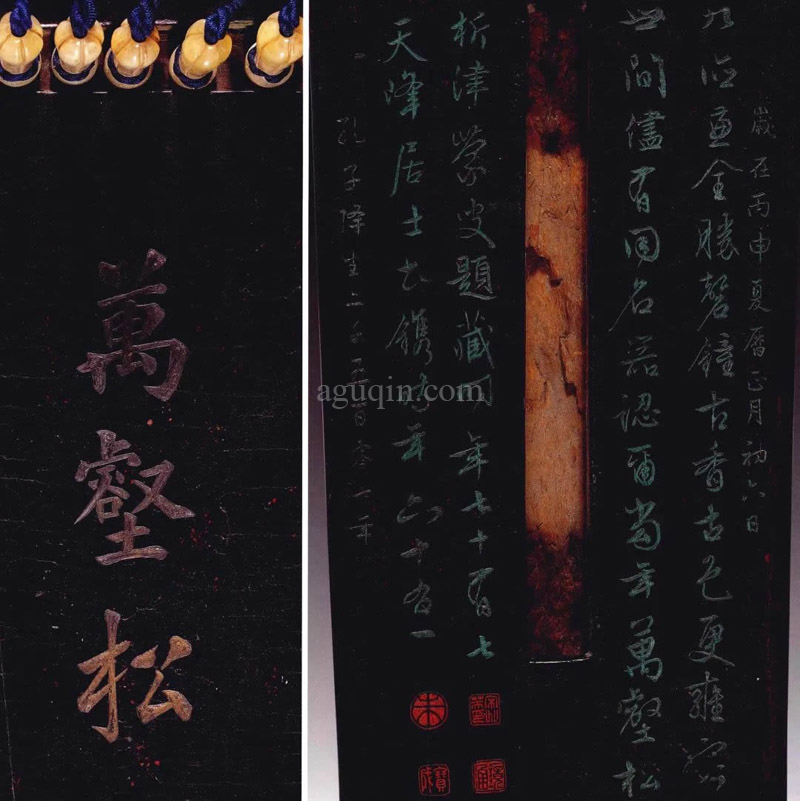 萬壑松
歲在丙申夏曆正月初六日
九德兼全勝磬鐘古香古色更雍容
世間儘有同名器認爾當年萬壑松
析津叟題藏時年七十有七
天峰居士書鐫時年六十有一
孔子降生二千五百零年
朱
aguqin.com